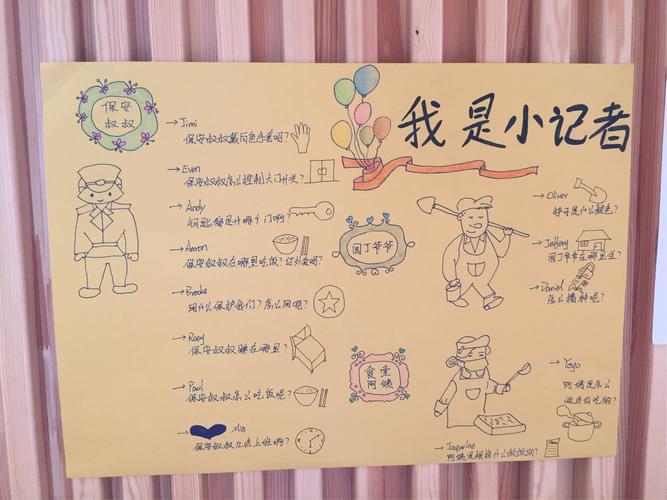 我是小记者
保安
叔叔
→Jimi
保安叔叔戴何色手套吗?
→Even
保安叔叔怎么控制大门开关?
→Andy
钥匙都是开哪个门啊?
→Aaron
保安叔叔在哪里吃饭?订外卖吗?
→Brooke
用什么保护我们?怎么用呢?
→Roey
保安叔叔睡在哪里?
→Paul
保安叔叔怎么吃饭呢?
→Mia
保安叔叔几点上班啊?
园丁爷爷
→Oliver
铲子是什么颜色?
→Jeffery
园丁爷爷在哪里住?
→Daniel
怎么播种呢?
食堂
阿姨
→Yoyo
阿姨是怎么
做好吃的呢?
→Jacqueline